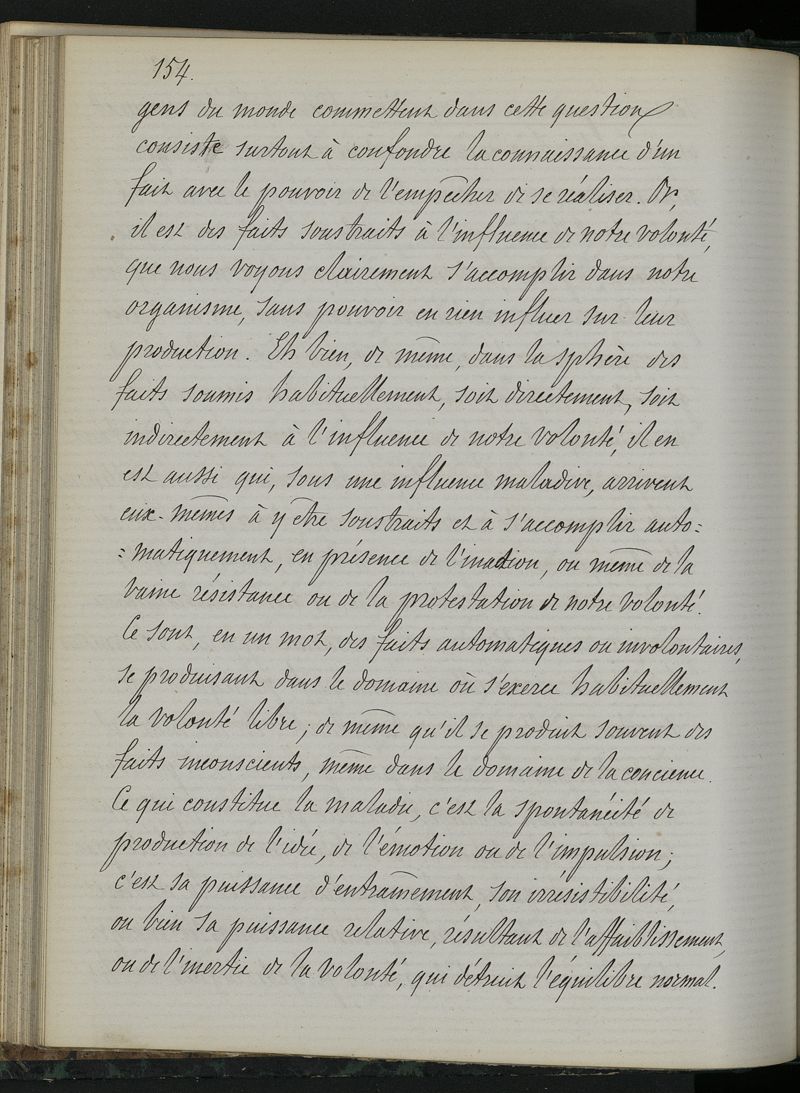 154.
gens du monde commettent dans cette question
consiste surtout à confondre la connaissance d'un
fait avec le pouvoir de l'empêcher de se réaliser. Or,
il est des faits soustraits à l'influence de notre volonté,
que nous voyons clairement s'accomplir dans notre
organisme, sans pouvoir en rien influer sur leur
production. Eh bien, de même, dans la sphère des
faits soumis habituellement, soit directement, soit
indirectement à l'influence de notre volonté, il en
est aussi qui, sous une influence maladive, arrivent
eux-mêmes à y être soustraits et à s'accomplir auto=
=matiquement, en présence de l'inaction, ou même de la
vaine résistance ou de la protestation de notre volonté.
Ce sont, en un mot, des faits automatiques ou involontaires,
se produisant dans le domaine où s'exerce habituellement
la volonté libre; de même qu'il se produit souvent des
faits inconscients, même dans le domaine de la concience.
Ce qui constitue la maladie, c'est la spontanéité de
production de l'idée, de l'émotion ou de l'impulsion;
c'est sa puissance d'entraînement, son irrésistibilité,
ou bien sa puissance relative, résultant de l'affaiblissement,
ou de l'inertie de la volonté, qui détruit l'équilibre normal.